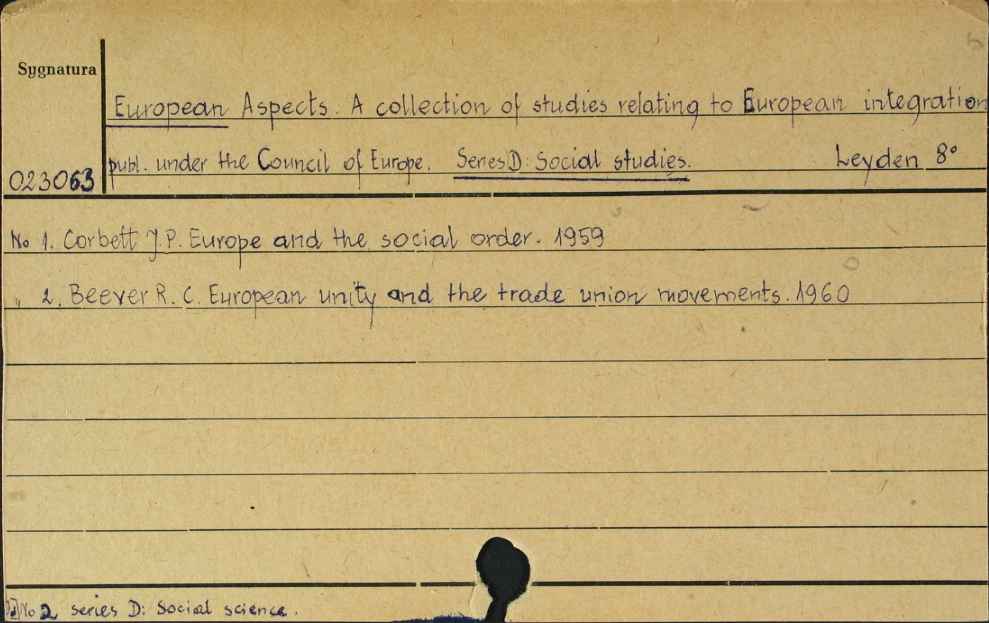 Sygnatura
European Aspects. A collection of studies relating to European integration
publ. under the Council of Europe. Series D: Social studies. Leyden 8°
023063
No 1. Corbett J.P. Europe and the social order. 1959
„ 2. Beever R. C. European unity and the trade union movements. 1960
No 2 series D: Social science.